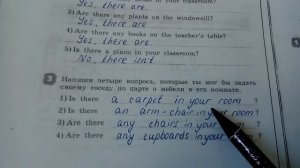 to your classroom?
Yes, there are.
3) Are there any plants on the windowsill?
Yes, there are.
4) Are there any books on the teacher's table?
Yes, there are.
5) Is there a piano in your classroom?
No, there isn't
3 Напиши четыре вопроса, которые ты мог бы задать
своему соседу по парте о мебели в его комнате.
1) Is there a carpet in your room ?
2) Is there an arm-chair in your room?
3) Are there any chairs in your room ?
4) Are there any cupboards in your room ?